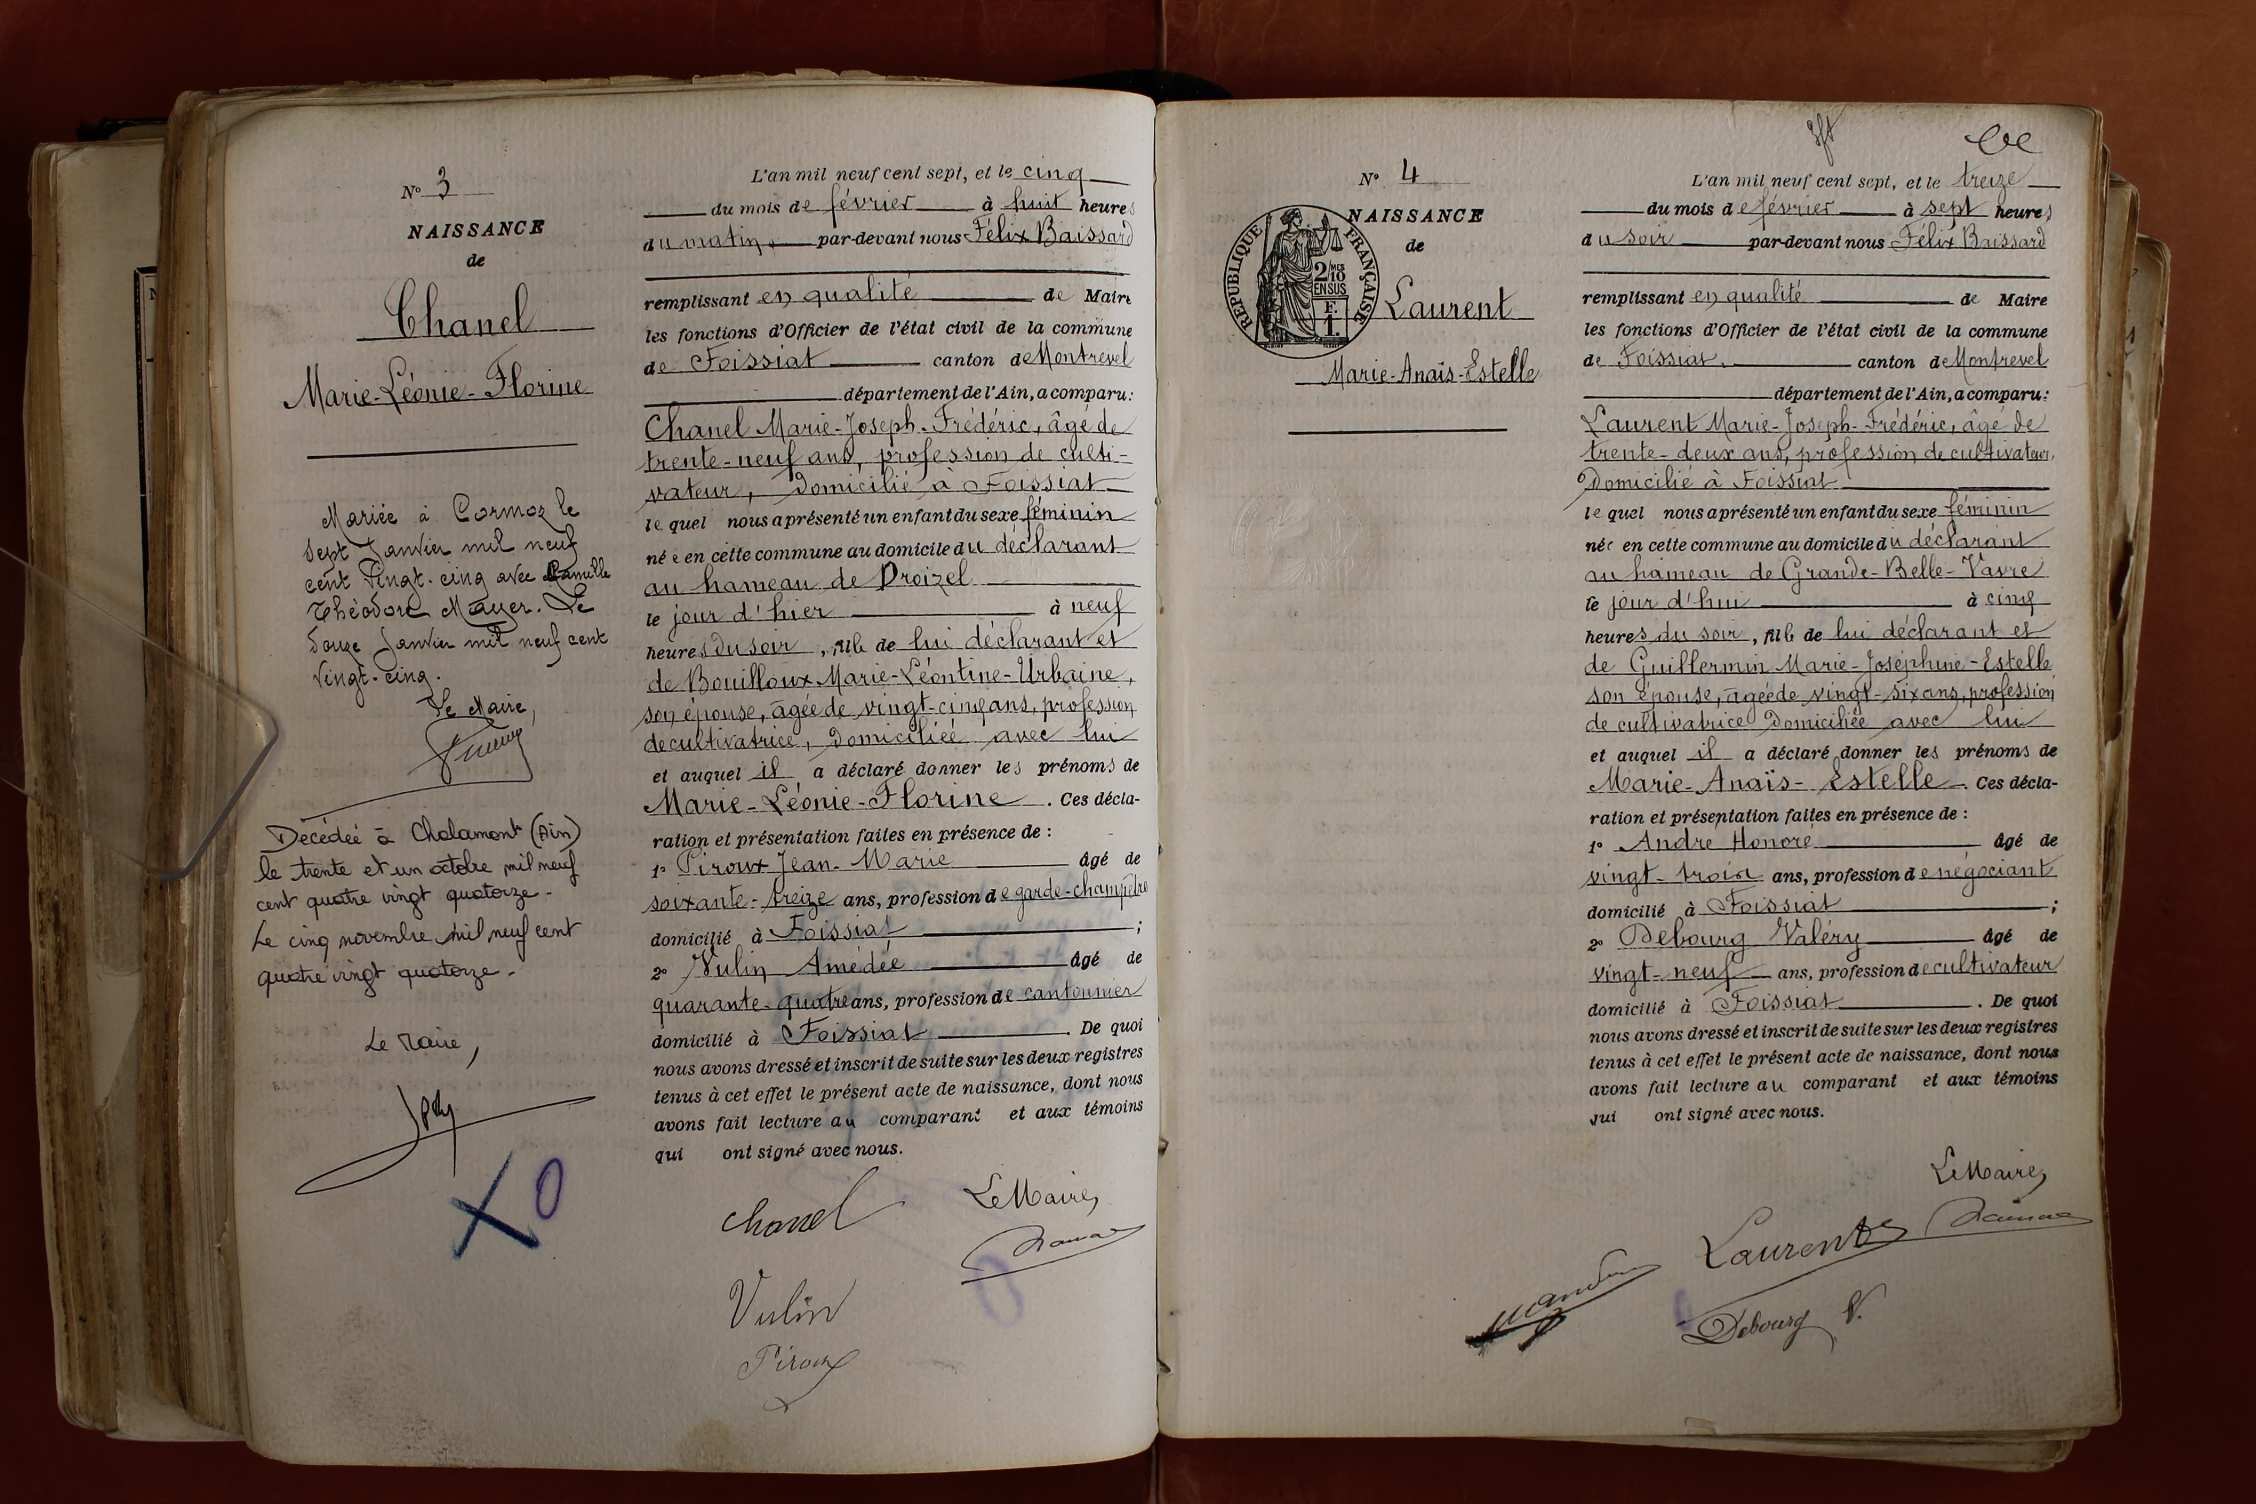 N° 3
NAISSANCE
de
Chanel
Marie-Léonie-Florine
Mariée à Cormoz le
sept Janvier mil neuf
cent vingt-cinq avec Camille
Théodore Mayer. Le
douze Janvier mil neuf cent
vingt-cinq.
Le Maire,
Décédée à Chalamont (Ain)
le trente et un octobre mil neuf
cent quatre vingt quatorze -
Le cinq novembre mil neuf cent
quatre vingt quatorze -
Le Maire,
L'an mil neuf cent sept, et le cinq
du mois de février à huit heures
du matin, par-devant nous Félix Baissard
remplissant en qualité de Maire
les fonctions d'Officier de l'état civil de la commune
de Foissiat canton de Montrevel
département de l'Ain, a comparu:
Chanel Marie-Joseph-Frédéric, âgé de
trente-neuf ans, profession de culti-
vateur, domicilié à Foissiat
lequel nous a présenté un enfant du sexe féminin
née en cette commune au domicile du déclarant
au hameau de Proizel
le jour d'hier à neuf
heures du soir, fille de lui déclarant et
de Bouilloux Marie-Léontine-Urbaine,
son épouse, âgée de vingt-cinq ans, profession
de cultivatrice, domiciliée avec lui
et auquel il a déclaré donner les prénoms de
Marie-Léonie-Florine. Ces décla-
ration et présentation faites en présence de :
1° Piroux Jean-Marie âgé de
soixante-treize ans, profession de garde-champêtre
domicilié à Foissiat ;
2° Vulin Amédée âgé de
quarante-quatre ans, profession de cantonnier
domicilié à Foissiat. De quoi
nous avons dressé et inscrit de suite sur les deux registres
tenus à cet effet le présent acte de naissance, dont nous
avons fait lecture au comparant et aux témoins
qui ont signé avec nous.
Le Maire,
Chanel
Vulin
Piroux
N° 4
NAISSANCE
de
RÉPUBLIQUE FRANÇAISE
2/10 MES
EN SUS
F.
1.
Laurent
Marie-Anaïs-Estelle
L'an mil neuf cent sept, et le treize
du mois de février à sept heures
du soir par-devant nous Félix Baissard
remplissant en qualité de Maire
les fonctions d'Officier de l'état civil de la commune
de Foissiat. canton de Montrevel
département de l'Ain, a comparu:
Laurent Marie-Joseph-Frédéric, âgé de
trente-deux ans, profession de cultivateur,
domicilié à Foissiat
lequel nous a présenté un enfant du sexe féminin
née en cette commune au domicile du déclarant
au hameau de Grande-Belle-Vavre
le jour d'hui à cinq
heures du soir, fille de lui déclarant et
de Guillermin Marie-Joséphine-Estelle
son épouse, âgée de vingt-six ans, profession
de cultivatrice domiciliée avec lui
et auquel il a déclaré donner les prénoms de
Marie-Anaïs-Estelle. Ces décla-
ration et présentation faites en présence de :
1° André Honoré âgé de
vingt-trois ans, profession de négociant
domicilié à Foissiat ;
2° Debourg Valéry âgé de
vingt-neuf ans, profession de cultivateur
domicilié à Foissiat. De quoi
nous avons dressé et inscrit de suite sur les deux registres
tenus à cet effet le présent acte de naissance, dont nous
avons fait lecture au comparant et aux témoins
qui ont signé avec nous.
Le Maire,
Laurent
Debourg V.